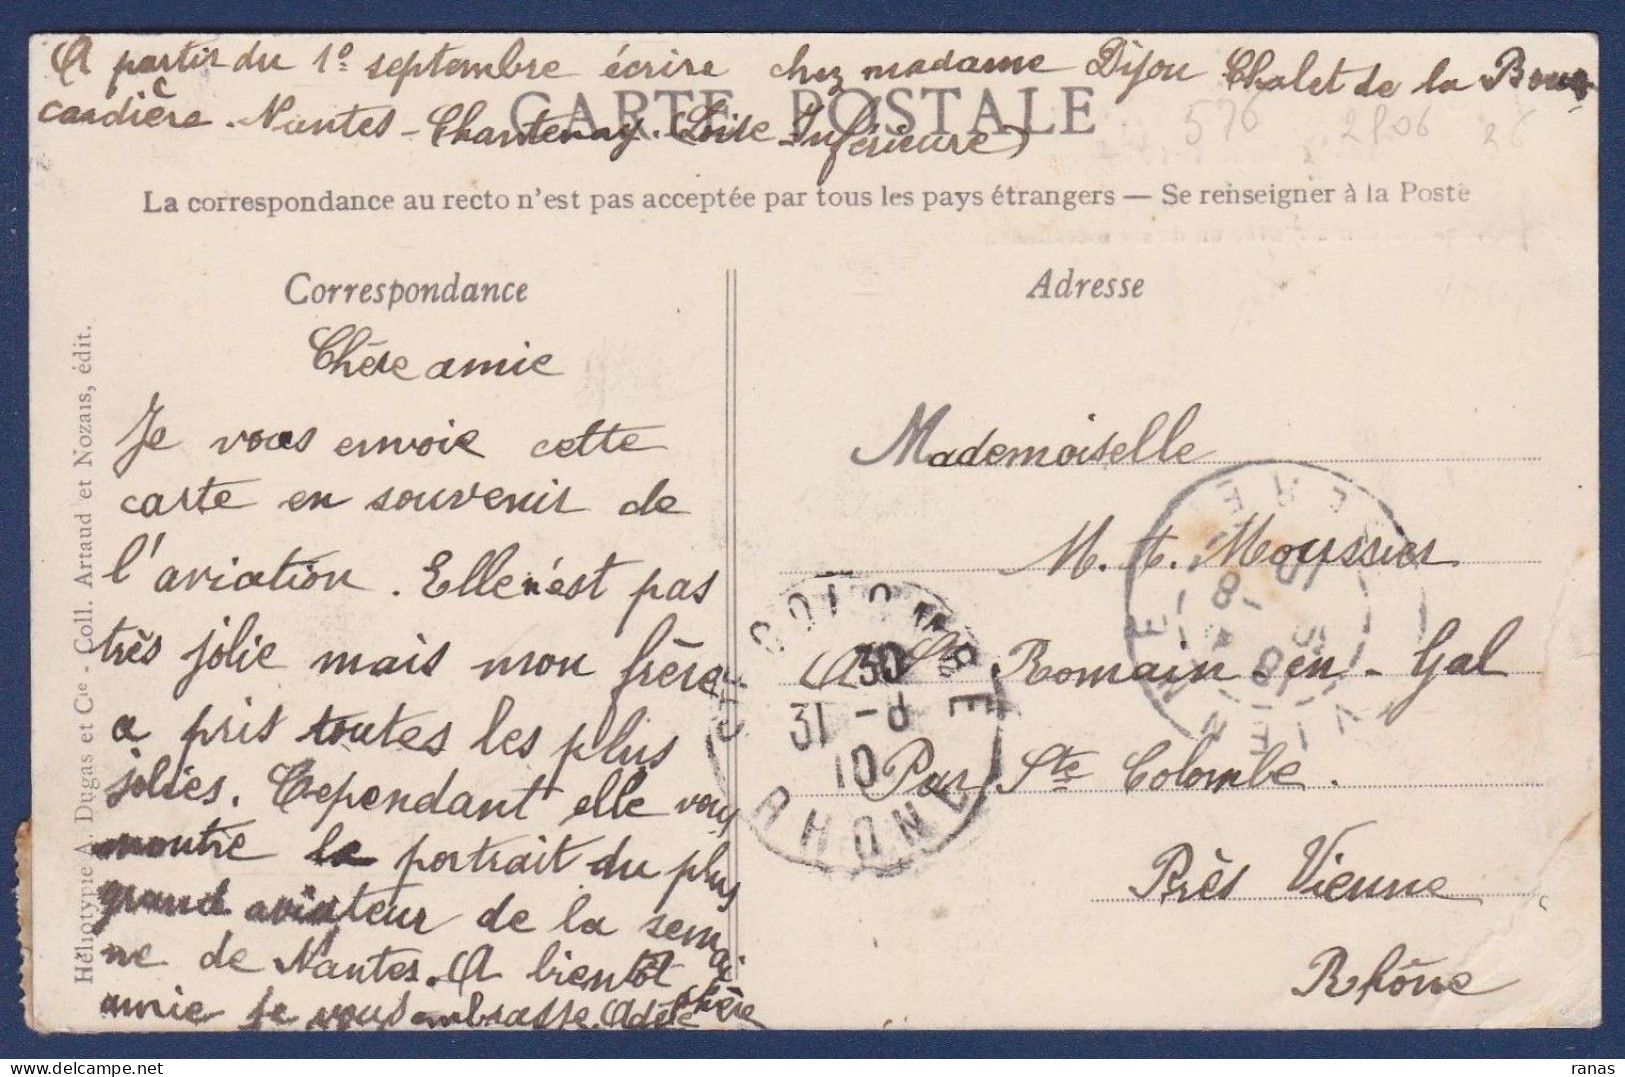 A partir du 1º septembre écrire chez madame Dijou Chalet de la Bouc
cardière - Nantes - Chantenay. (Loire Inférieure)
CARTE POSTALE
576 2806 26
La correspondance au recto n'est pas acceptée par tous les pays étrangers — Se renseigner à la Poste
Correspondance
Chère amie
Je vous envoie cette
carte en souvenir de
l'aviation. Elle n'est pas
très jolie mais mon frère
a pris toutes les plus
jolies. Cependant elle vous
montre le portrait du plus
grand aviateur de la semai
ne de Nantes. A bientôt chère
amie je vous embrasse. Adèle
Héliotypie A. Dugas et Cie - Coll. Artaud et Nozais, édit.
Adresse
Mademoiselle
M. A. Moussier
A St Romain - en - Gal
Par Ste Colombe.
Près Vienne
Rhône
STE COLOMBE
30
31 - 8
10
RHONE
VIENNE
ISERE
ranas